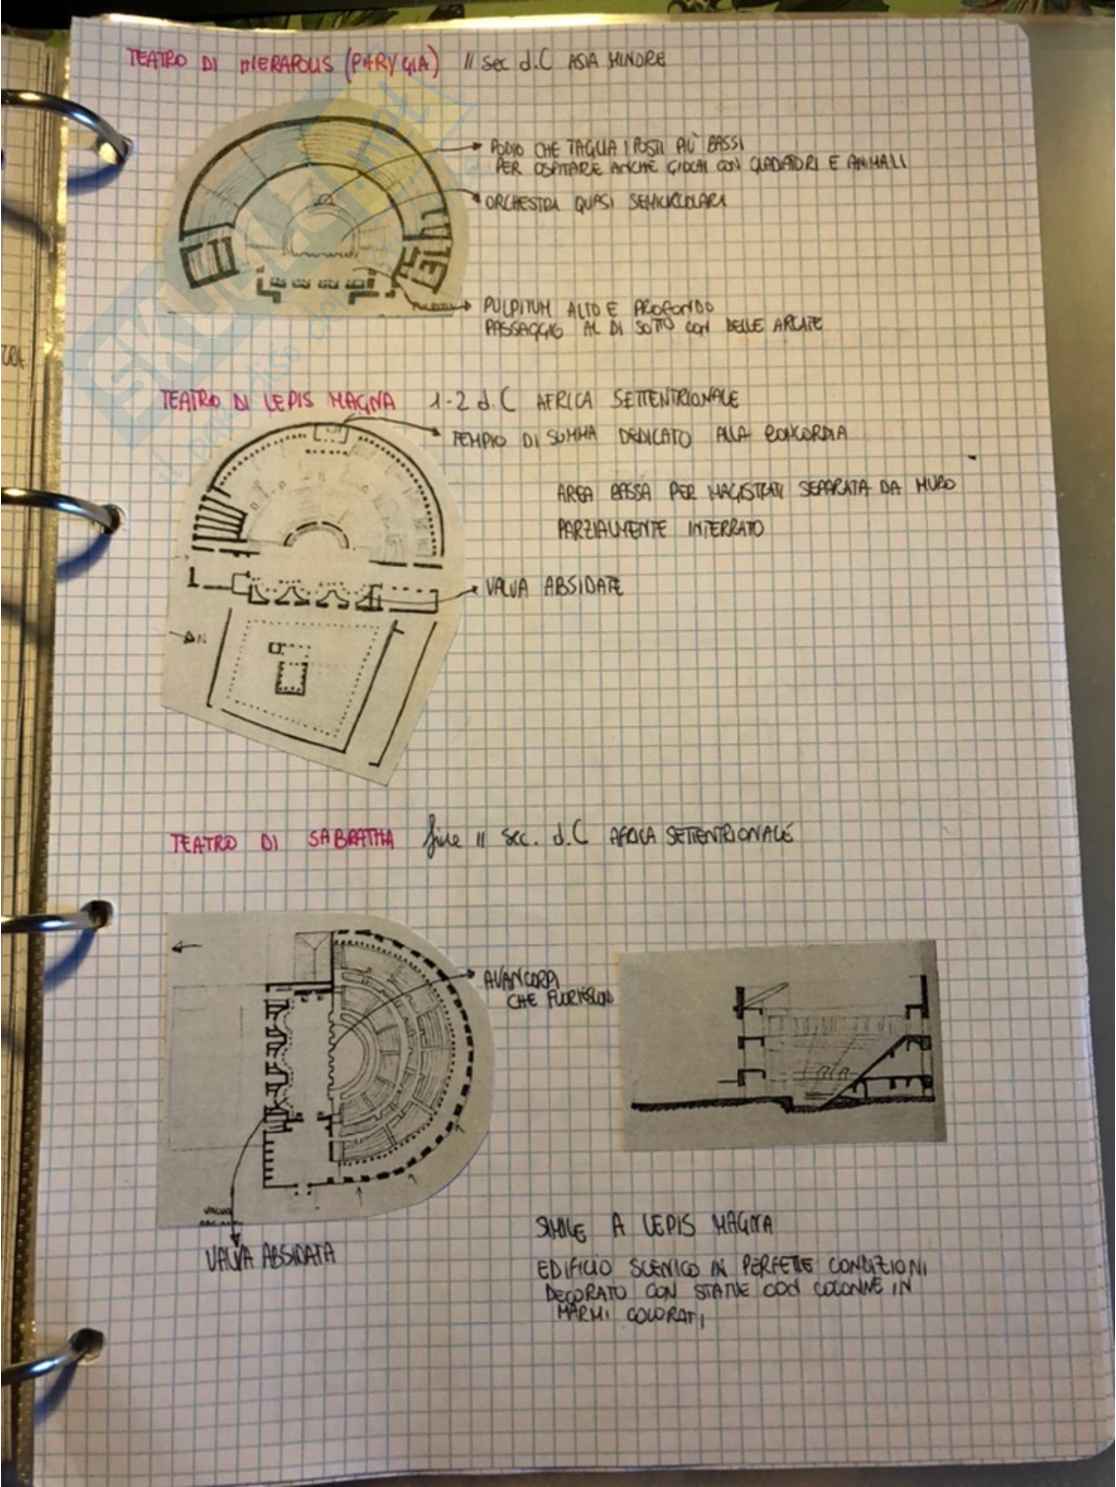 TEATRO DI HIERAPOLIS (PHRYGIA) II sec d.C ASIA MINORE
PODIO CHE TAGLIA I POSTI PIÙ BASSI
PER OSPITARE ANCHE GIOCHI CON GLADIATORI E ANIMALI
ORCHESTRA QUASI SEMICIRCOLARI
PULPITUM ALTO E PROFONDO
PASSAGGIO AL DI SOTTO CON DELLE ARCATE
TEATRO DI LEPIS MAGNA 1-2 d.C AFRICA SETTENTRIONALE
TEMPIO DI SUMMA DEDICATO ALLA CONCORDIA
AREA BASSA PER MAGISTRATI SEPARATA DA MURO
PARZIALMENTE INTERRATO
VALVA ABSIDATE
N
TEATRO DI SABRATHA fine II sec. d.C AFRICA SETTENTRIONALE
AVANCORPI
CHE FUORIESCONO
VALVA
VALVA ABSIDATA
SIMILE A LEPIS MAGNA
EDIFICIO SCENICO IN PERFETTE CONDIZIONI
DECORATO CON STATUE CON COLONNE IN
MARMI COLORATI